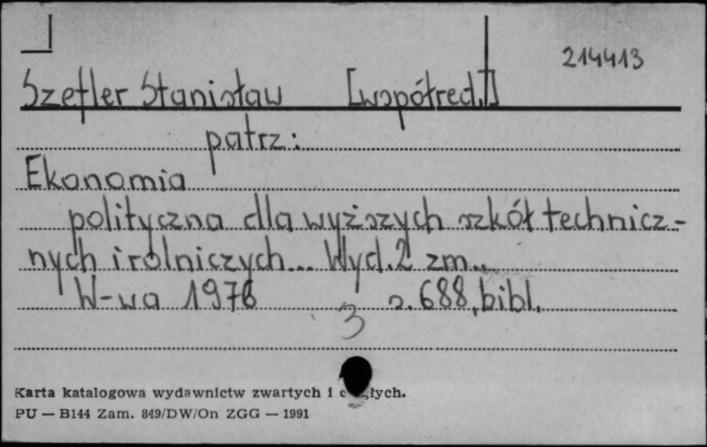 214413
Szefler Stanisław [współred.]
patrz:
Ekonomia
polityczna dla wyższych szkół technicz-
nych i rolniczych... Wyd. 2 zm..
W-wa 1976 s. 688, bibl.
3
Karta katalogowa wydawnictw zwartych i
PU — B144 Zam. 849/DW/On ZGG — 1991